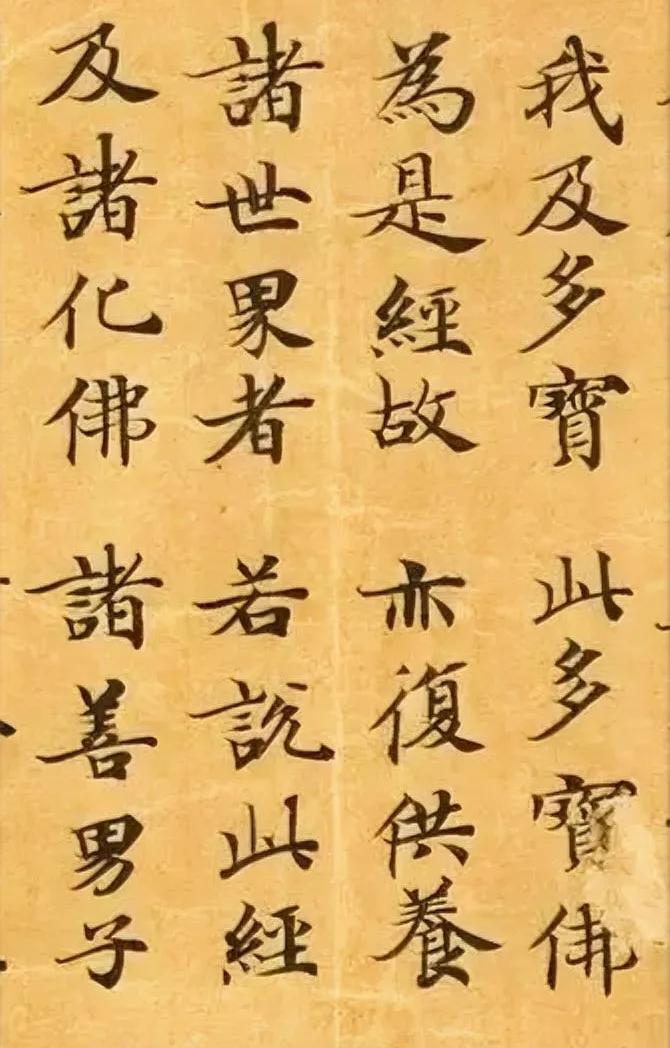 我及多寶 此多寶佛
為是經故 亦復供養
諸世界者 若說此經
及諸化佛 諸善男子